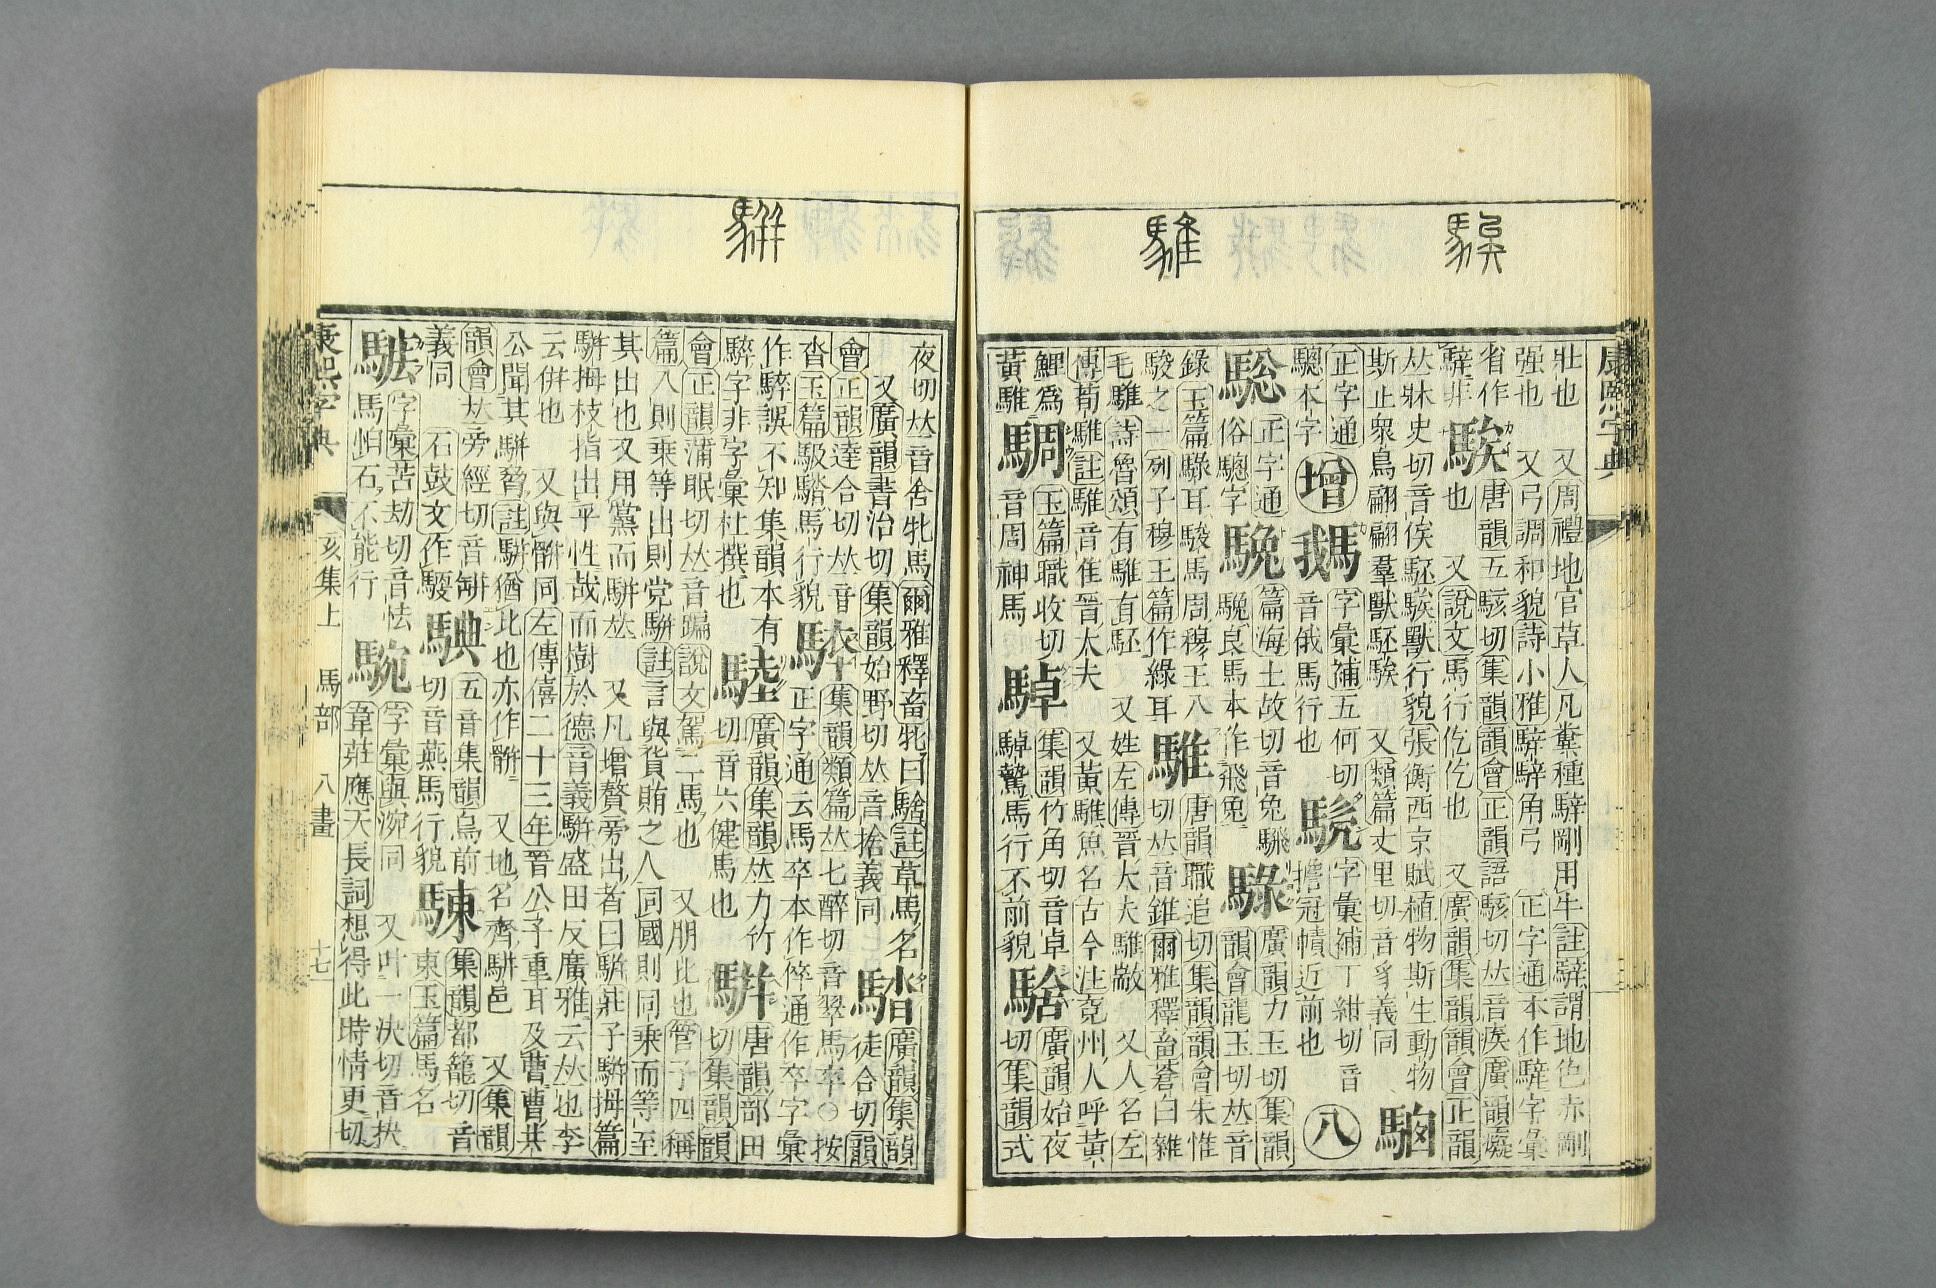 騃
騅
騈
康熙字典
壯也　又周禮地官草人凡糞種騂剛用牛註騂謂地色赤剛
强也　又弓調和貌詩小雅騂騂角弓　正字通本作騂字彙
省作
騂非
騃
唐韻五駭切集韻韻會正韻語駭切𠀤音疾廣韻癡
也　又說文馬行仡仡也　又廣韻集韻韻會正韻
𠀤牀史切音俟駓騃獸行貌張衡西京賦植物斯生動物
斯止衆鳥翩翩羣獸駓騃　又類篇丈里切音豸義同
正字通
驄本字
增
騀
字彙補五何切
音俄馬行也
字彙補丁紺切音
擔冠幘近前也
八
騘
正字通
俗驄字
篇海土故切音兔
駿良馬本作飛兔
騄
廣韻力玉切集韻
韻會龍玉切𠀤音
錄玉篇騄耳駿馬周穆王八
駿之一列子穆王篇作綠耳
騅
唐韻職追切集韻韻會朱惟
切𠀤音錐爾雅釋畜蒼白雜
毛騅詩魯頌有騅有駓　又姓左傳晉大夫騅歂　又人名左
傳荀騅註騅音隹晉大夫　又黃騅魚名古今注兗州人呼黃
鯉爲
黃騅
騆
玉篇職收切
音周神馬
䮓
集韻竹角切音卓
䮓驚馬行不前貌
騇
廣韻始夜
切集韻式
夜切𠀤音舍牝馬爾雅釋畜牝曰騇註草馬名
又廣韻書治切集韻始野切𠀤音捨義同
騇
廣韻集韻
徒合切韻
會正韻達合切𠀤音
沓玉篇馺騇馬行貌
集韻類篇𠀤七醉切音翠馬卒○按
正字通云馬卒本作倅通作卒字彙
作騂誤不知集韻本有
騂字非字彙杜撰也
廣韻集韻𠀤力竹
切音六健馬也
騈
唐韻部田
切集韻韻
會正韻蒲眠切𠀤音蹁說文駕二馬也　又朋比也管子四稱
篇入則乘等出則党騈註言與貨賄之人同國則同乘而等至
其出也又用黨而騈𠀤　又凡增贅旁出者曰騈莊子騈拇篇
騈拇枝指出乎性哉而樹於德音義騈盛田反廣雅云𠀤也李
云併也　又與骿同左傳僖二十三年晉公子重耳及曹曹共
公聞其騈脅註騈猶比也亦作骿　又地名齊騈邑　又集韻
韻會𠀤旁經切音缾
義同　石鼓文作
騈
五音集韻烏前
切音燕馬行貌
駷
集韻都籠切音
東玉篇馬名
字彙苦劫切音怯
馬怕石不能行
䮍
字彙與涴同　又叶一決切音抉
韋莊應天長詞想得此時情更切
康熙字典
亥集上　馬部　八畫
十七